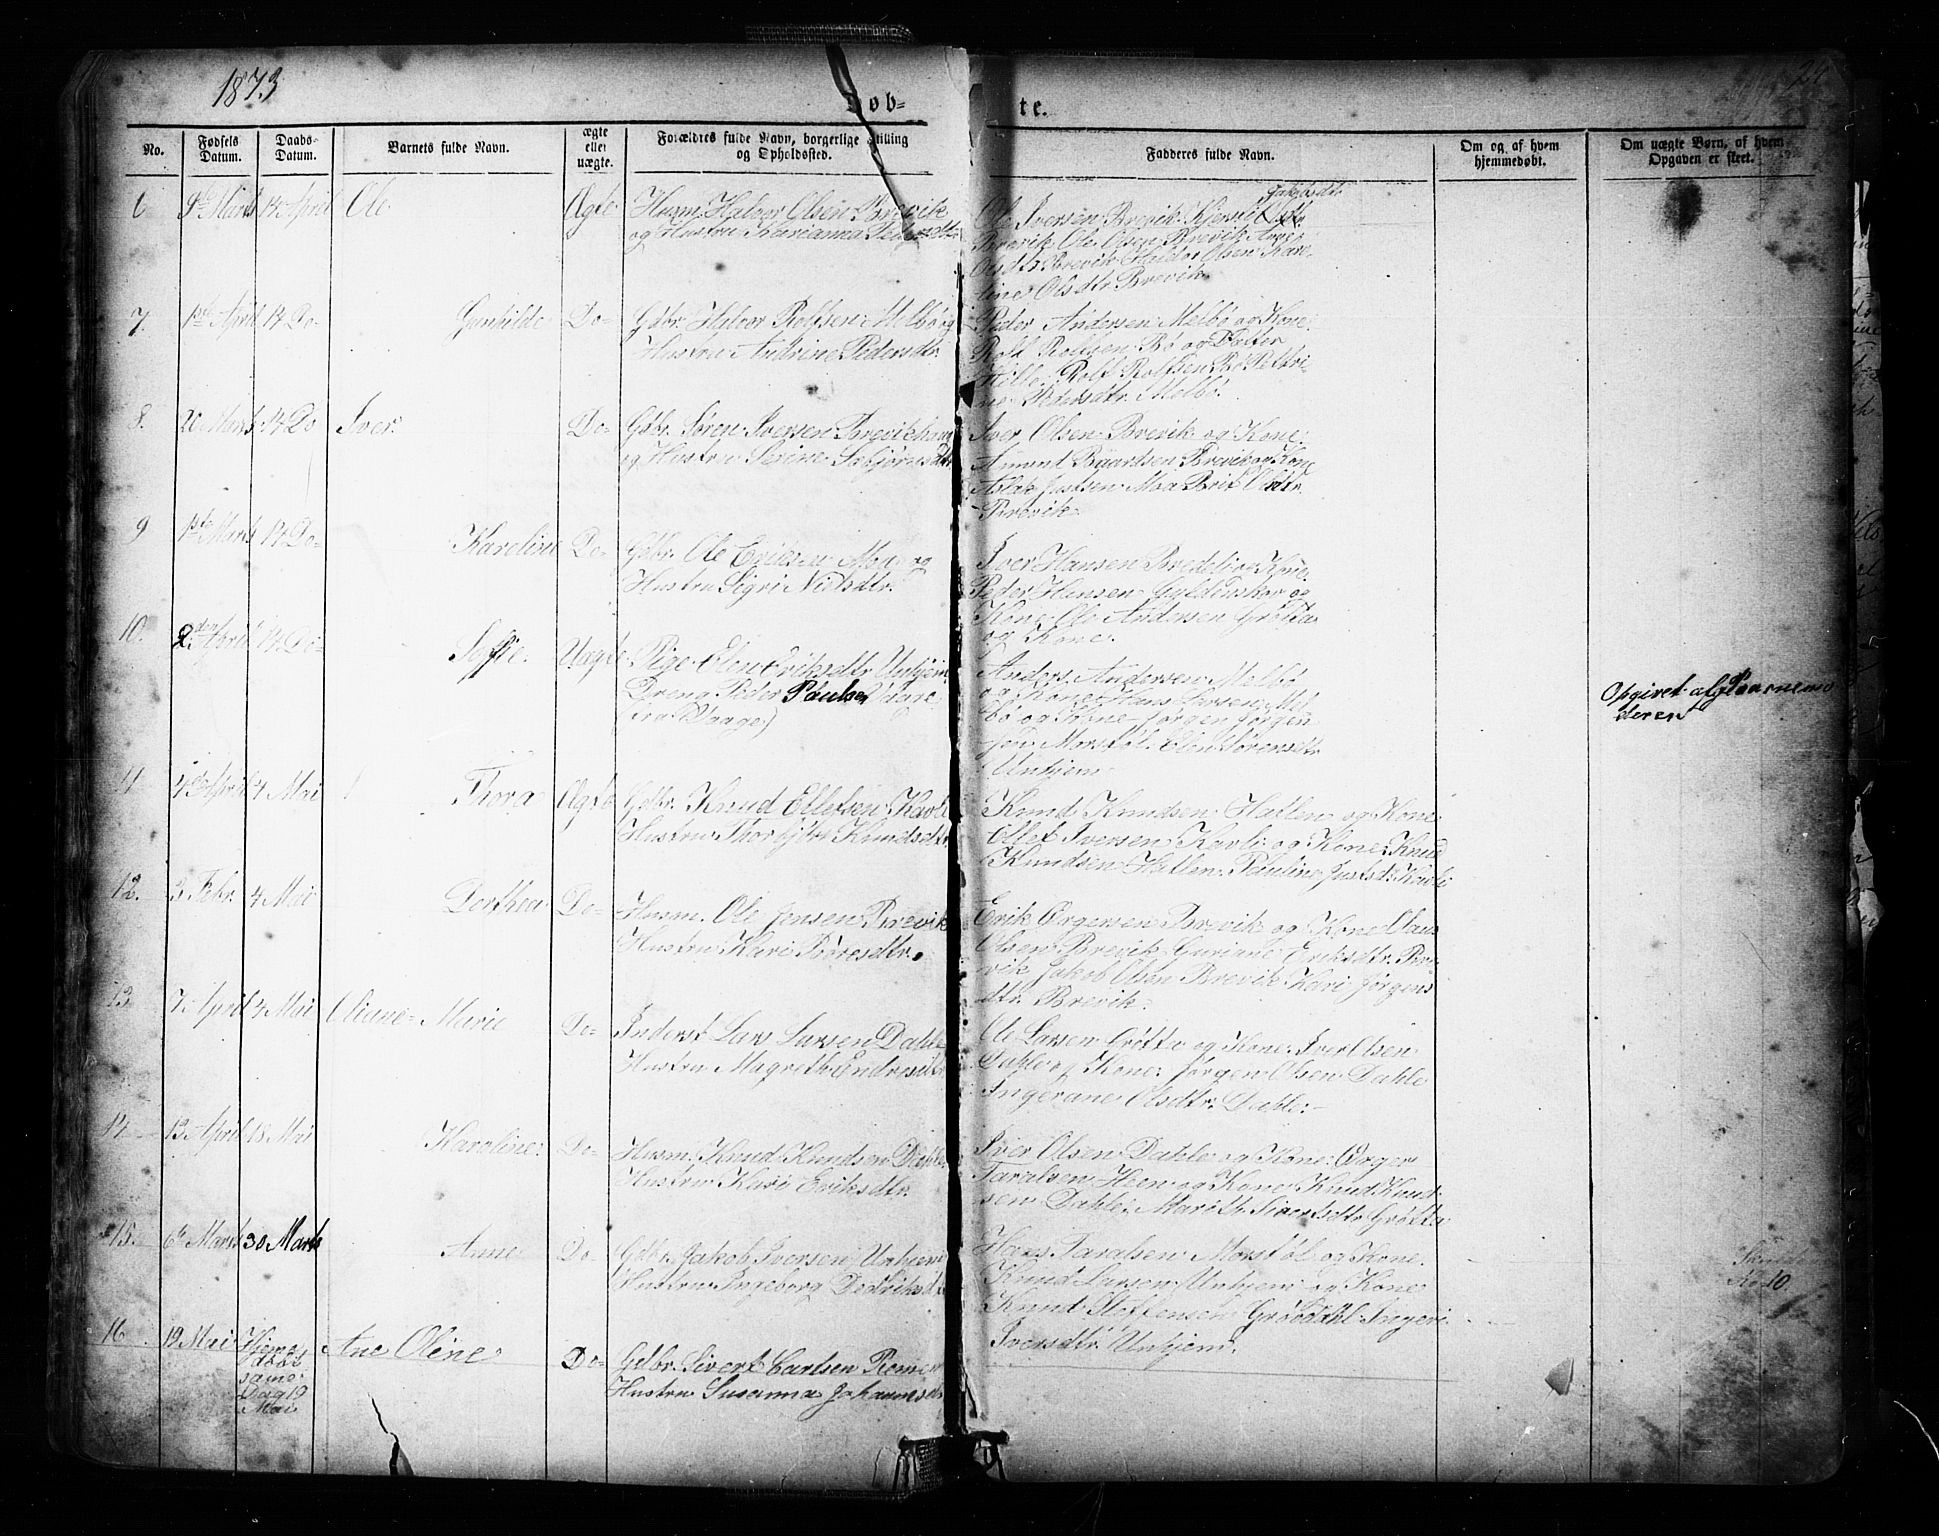 1873
Døb-
te.
24
No.
Fødsels Datum.
Daabs-Datum.
Barnets fulde Navn.
ægte eller uægte.
Forældres fulde Navn, borgerlige Stilling
og Opholdssted.
Fadderes fulde Navn.
Om og af hvem
hjemmedøbt.
Om uægte Børn, af hvem
Opgaven er skeet.
6 9de Marts 14 April Ole Ægte Husm. Halvor Olsen Brevik
og Hustru Karianna
Jakobsdtr
Ole Iversen Brevik
Brevik Ole Olsen Brevik Ane
Olsdtr. Brevik Haldor Olsen Kare
line Olsdtr Brevik
7. 1ste April 14 Do- Gunhilde Do- Gdbr. Halvor Rolfsen Melbø og
Hustru Andrine Pedersdtr.
Peder Andersen Melbø og Kone.
Rolf Rolfsen Bø og Datter
Hille. Rolf Rolfsen Bø Petri
ne Pedersdtr. Melbø.
8. 20 Marts 14 Do Iver. Do- Gdbr. Søren Iversen Brevikhaug
og Hustru Serine
Iver Olsen Brevik og Kone.
Amund Baardsen Brevik og Kone
Aslak Justsen Moa Brit Olsdtr.
Brevik
9 1ste Marts 14 Do- Karoline Do- Gdbr. Ole Eriksen Moa og
Hustru Sigri Nilsdtr.
Iver Hansen Bredeli og Kone.
Peder Hansen Gyldenskor og
Kone. Ole Andersen Grøtta
og Kone.
10. 2den April 14 Do- Soffie. Uægte Pige Elen Eriksdtr Unhjem
Dreng Peder Paulsen
(fra Vaage)
Anders Andersen Melbø
og Kone Hans Larsen Mel
bø og Kone Jørgen Jørgen
sen Morstøl. Elen Sørensdtr
Unhjem
Opgivet af Barnemo
deren
11 4de April 4 Mai Thora Ægte Gdbr. Knud Ellefsen Kavli
Hustru Thorbjør Knudsdtr.
Knud Knudsen Hatlen og Kone
Ellef Iversen Kavli og Kone. Knud
Knudsen Hatlen Pauline Justsd: Kavli
12. 3 Febr. 4 Mai Dorthea Do- Husm. Ole Jensen Brevik
Hustru Kari
Erik Ørgersen Brevik og Kone Olaus
Olsen Brevik Guriane Eriksdtr. Bre
vik Jakob Olsen Brevik Kari Jørgens
dtr. Brevik.
13 7. April 4 Mai Oliane- Marie Do- Inderst Lars Larsen Dahle
Hustru Magrethe Endresdtr
Ole Larsen Grøtta og Kone. Iver Olsen
Dahle og Kone. Jørgen Olsen Dahle
Ingerane Olsdtr. Dahle.-
14 13 April 18 Mai Karoline. Do- Husm. Knud Knudsen Dahle
Hustru Kari Eriksdtr.
Iver Olsen Dahle og Kone. Ørger
Taralsen Heen og Kone Knud Knud
sen Dahle. Marith Sivertsdtr Grøtta
15. 6te Marts 30 Marts Anne Do- Gdbr. Jakob Iversen Unhjem
Hustru Ingeborg Dedriksdtr
Hans Taralsen Morstøl og Kone.
Knud Larsen Unhjem og Kone
Knud Steffensen Grøvdahl. Ingeri
Iversdtr Unhjem.
No 10.
16 19 Mai Hjemme
døbt
same
Dag 19
Mai
Ane Oline Do- Gdbr. Sivert Carlsen
Hustru Susanna Johannesdtr